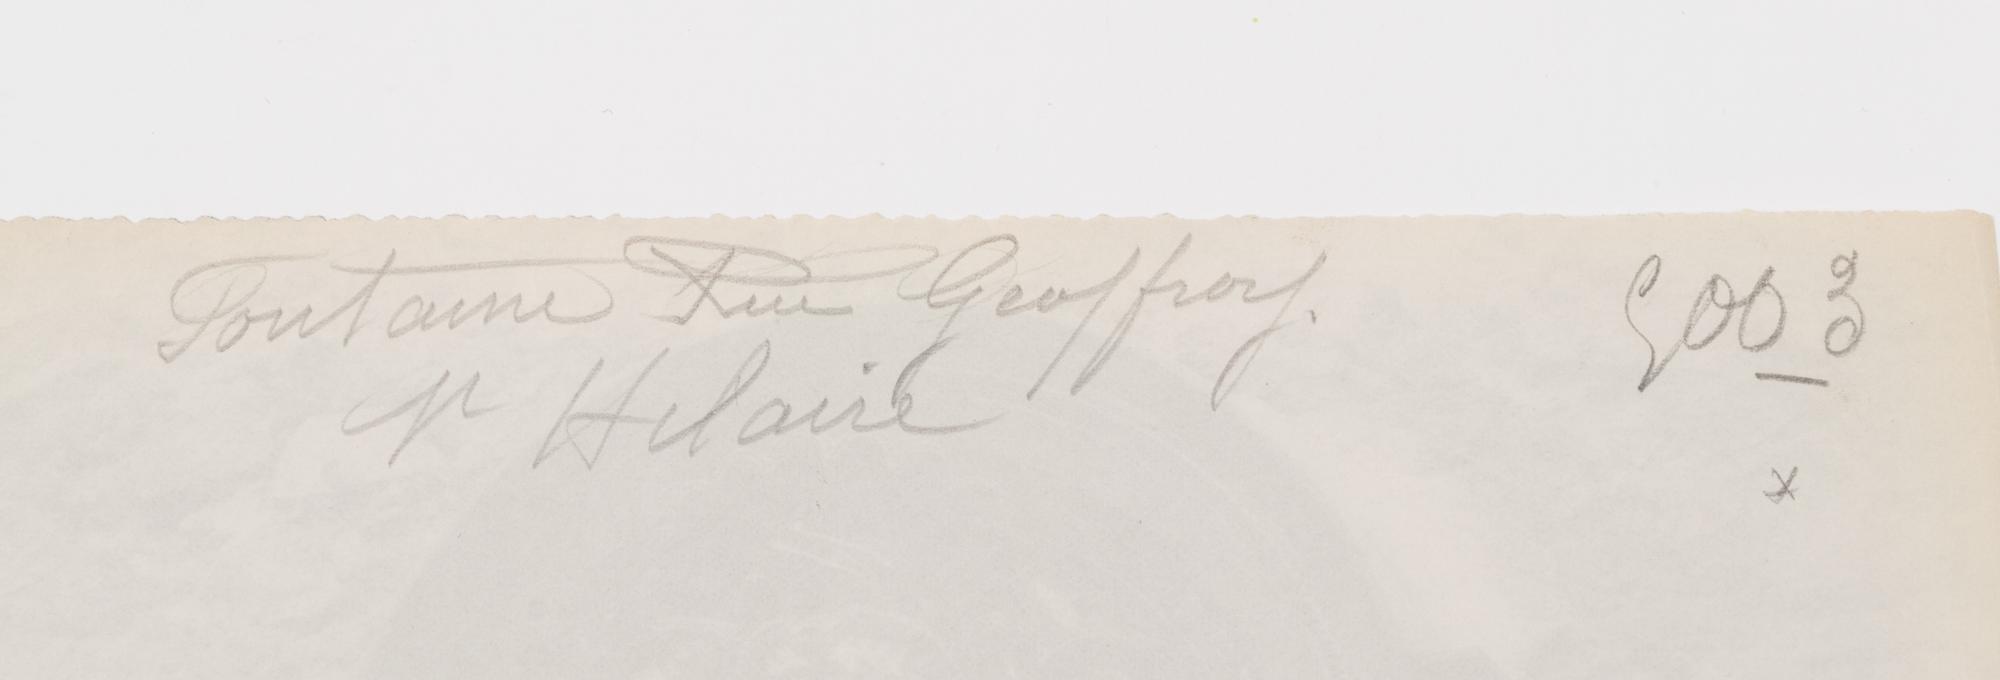 Fontaine Rue Geoffroy.
St Hilaire
5003
x